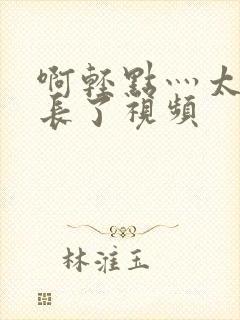 啊輕點灬太
長了視頻
林淮玉